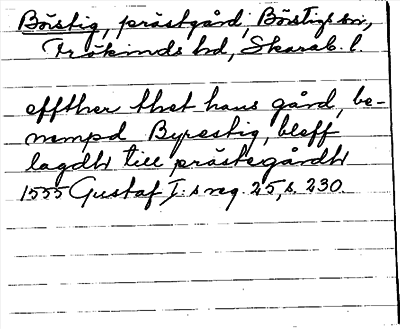 Börstig, prästgård, Börstigs sn,
Frökinds hd, Skarab. l
effther thet hans gård, be-
nempd Byrestig, bleff
lagdh till prästegårdh
1555 Gustaf I:s reg. 25, s. 230.